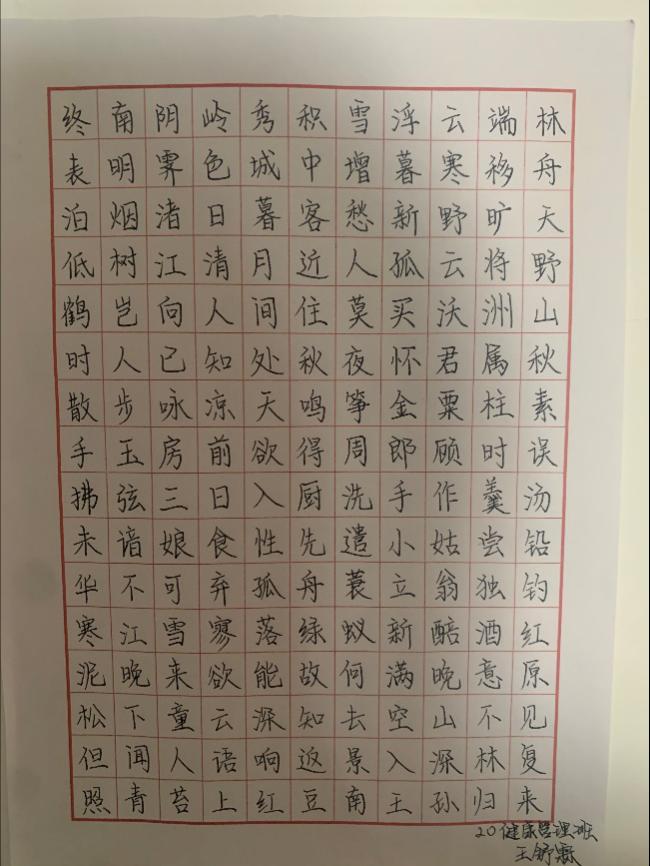 终南阴岭秀积雪浮云端林
表明霁色城中增暮寒移舟
泊烟渚日暮客愁新野旷天
低树江清月近人孤云将野
鹤岂向人间住莫买沃洲山
时人已知处秋夜怀君属秋
散步咏凉天鸣筝金粟柱素
手玉房前欲得周郎顾时误
拂弦三日入厨洗手作羹汤
未谙娘食性先遣小姑尝铅
华不可弃孤舟蓑立翁独钓
寒江雪寥落绿蚁新醅酒红
泥晚来欲能故何满晚意原
松下童云深知去空山不见
但闻人语响返景入深林复
照青苔上红豆南王孙归来
20健康管理班
王舒霖